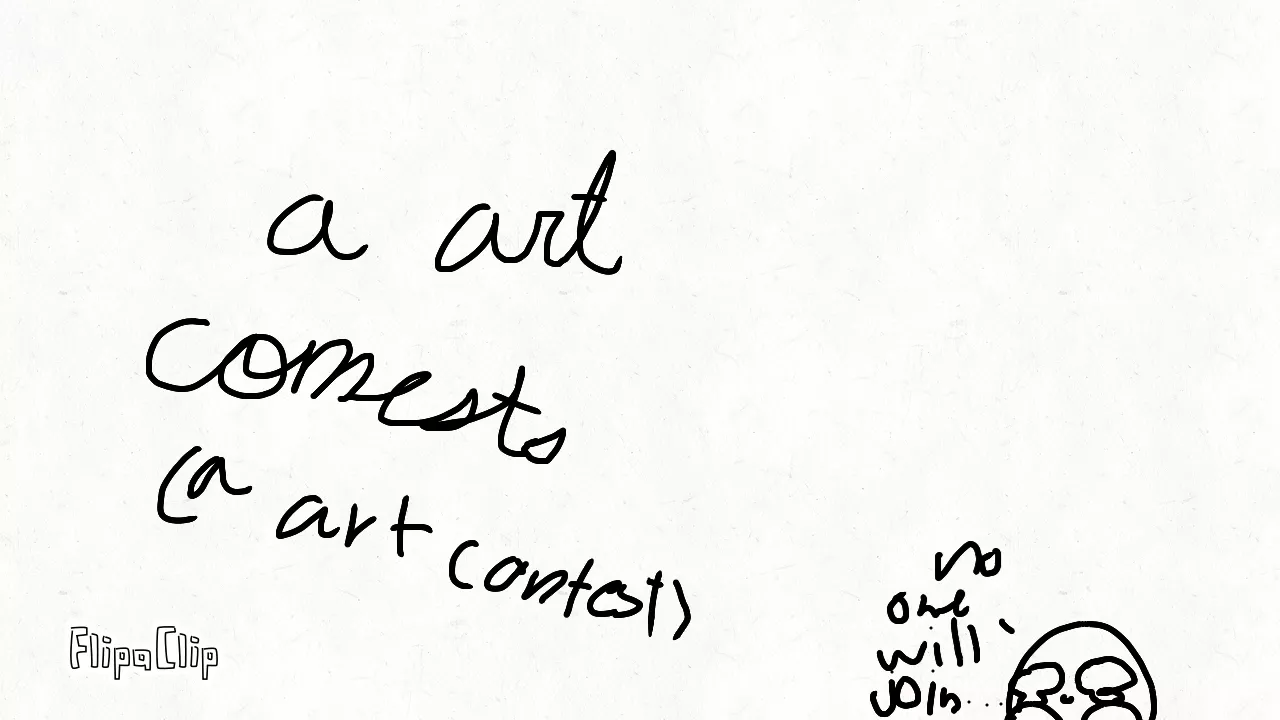 a art
comests
(a art contest)
no
one
will
join...
FlipaClip